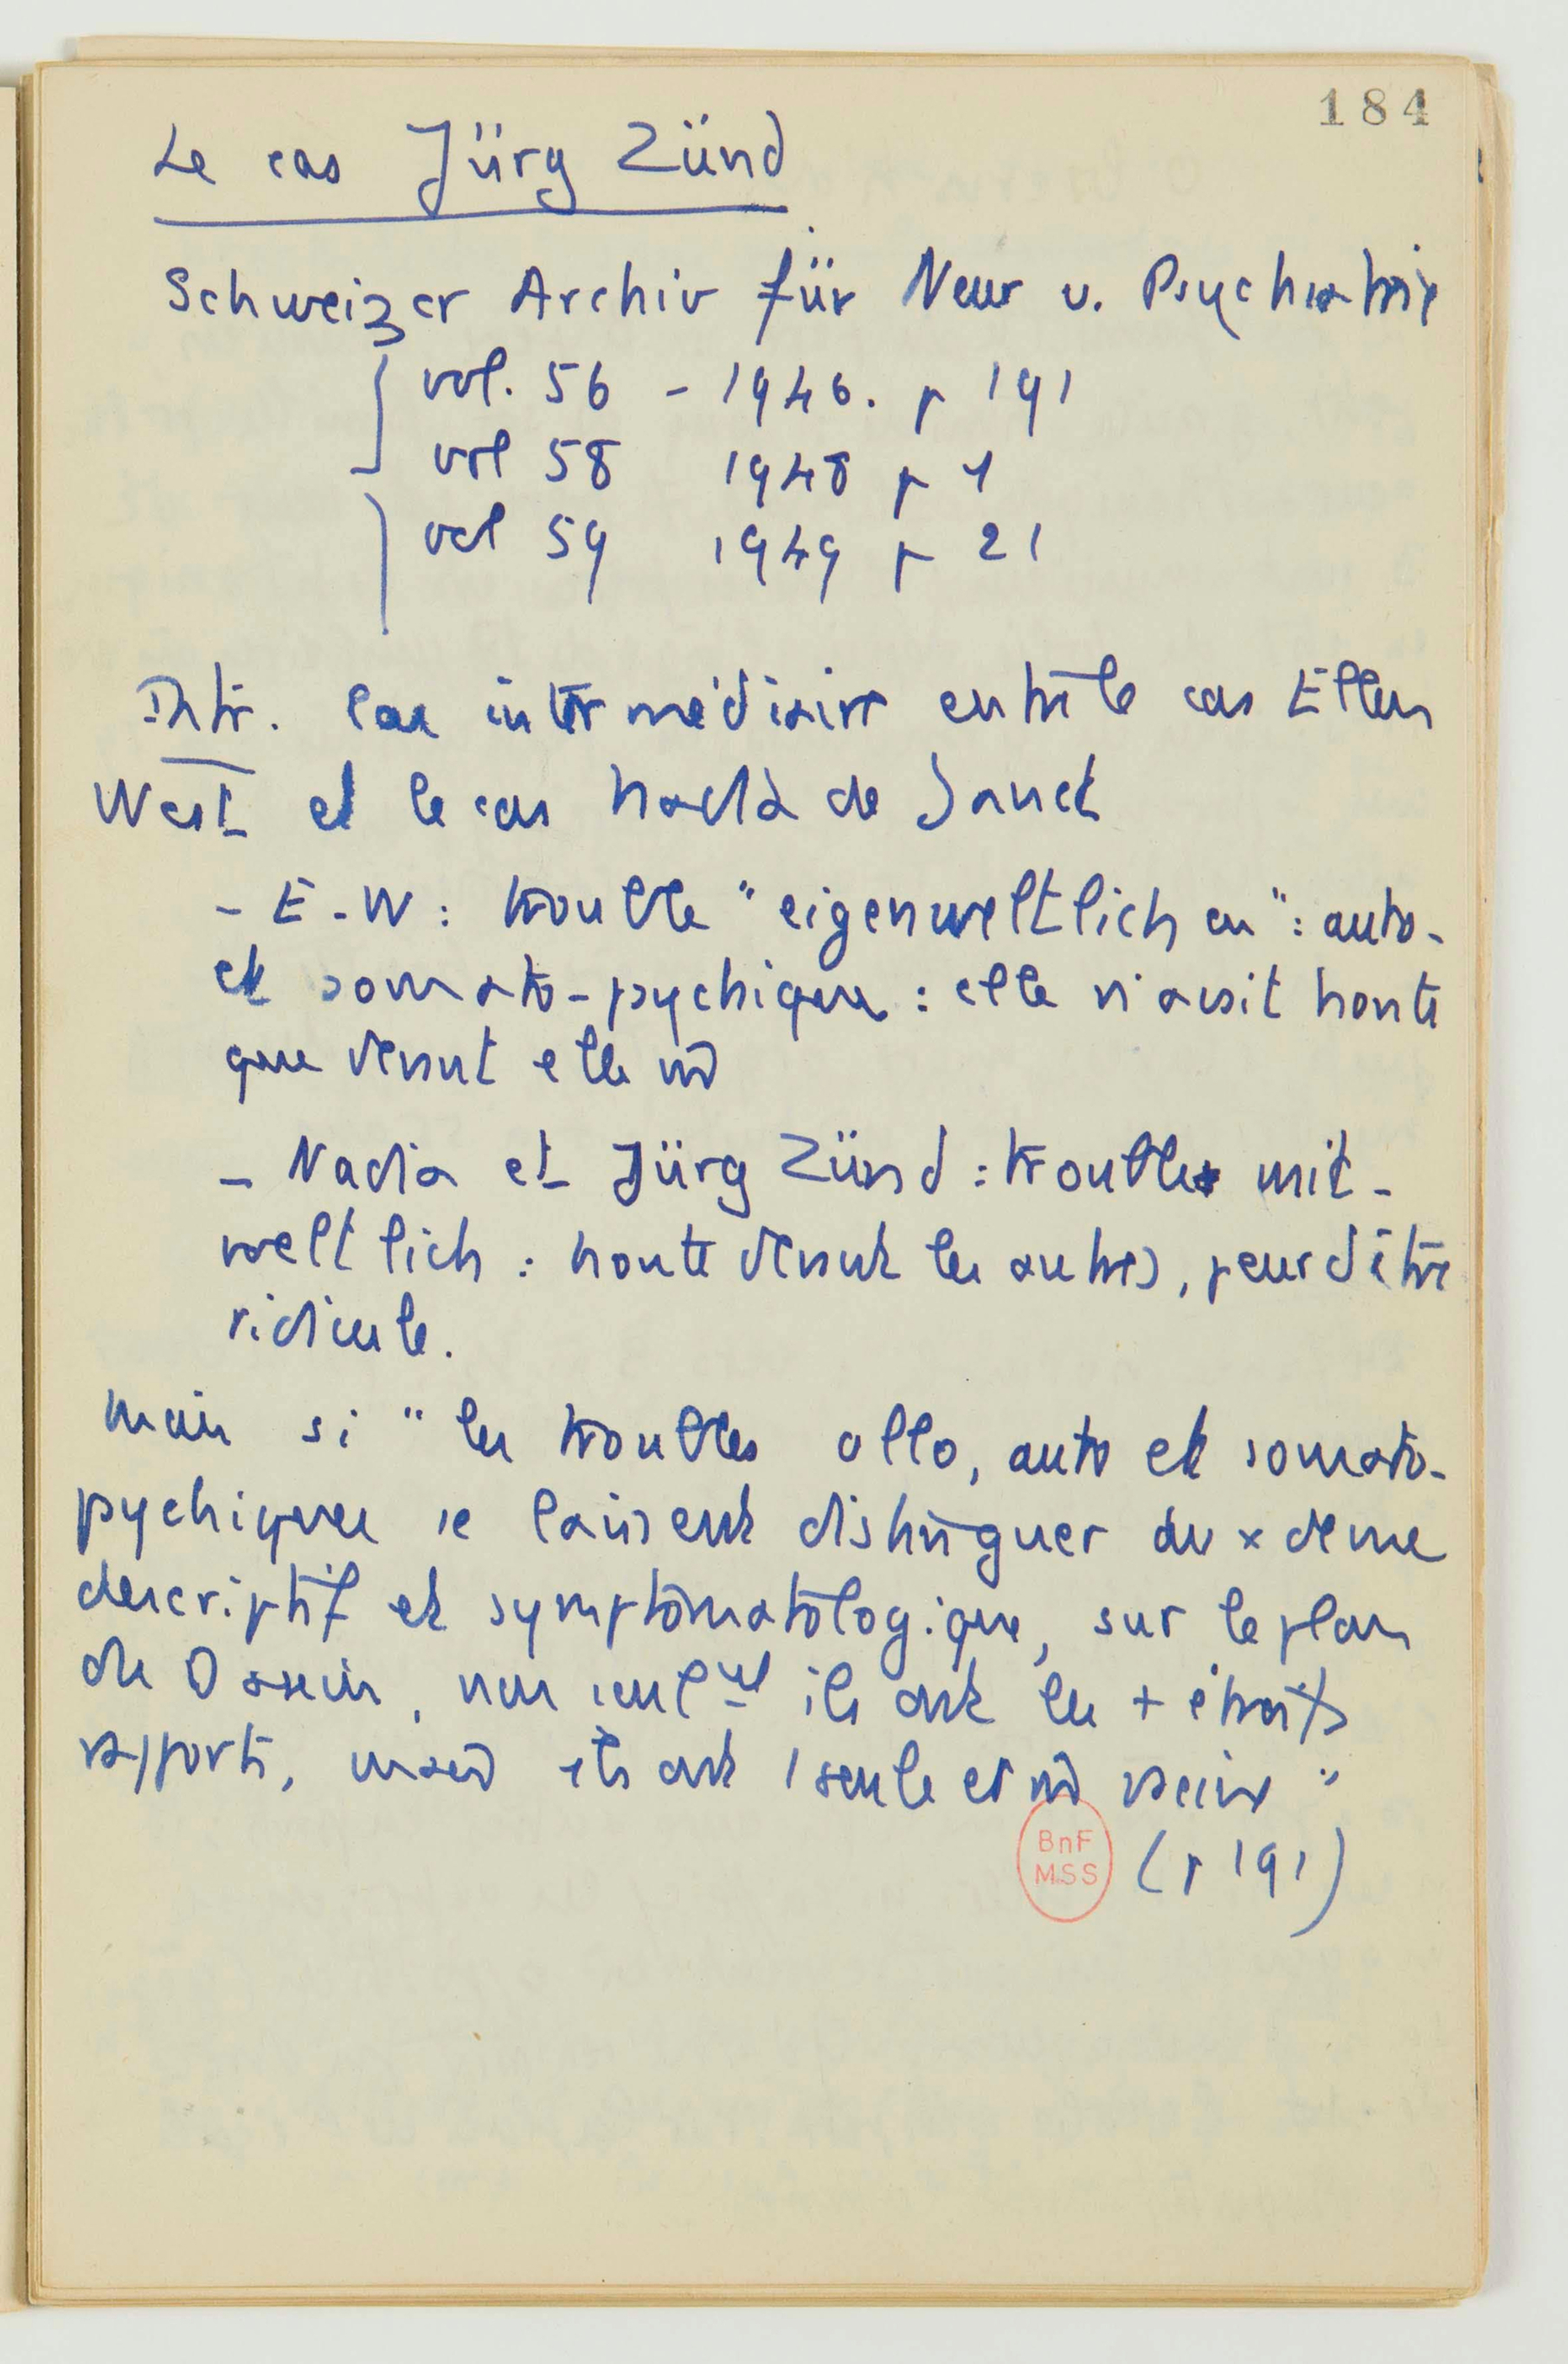 184
Le cas Jürg Zünd
Schweizer Archiv für Neur u. Psychiatrie
vol. 56 - 1946. p 191
vol 58 1948 p 1
vol 59 1949 p 21
Intr. Cas intermédiaire entre le cas Ellen
West et le cas Nadia de Janet
- E-W : trouble "eigenweltlich en" : auto-
et somato-psychique : elle n'avait honte
que devant elle m̂
- Nadia et Jürg Zünd : troubles mit-
weltlich : honte devant les autres, peur d'être
ridicule.
Mais si "les troubles allo, auto et somato-
psychiques se laissent distinguer du
descriptif et symptomatologique, sur le plan
du Dasein, non seulᵗ ils ont les + étroits
rapports, mais ils ont 1 seule et m̂ racine"
(p 191)
BnF
MSS